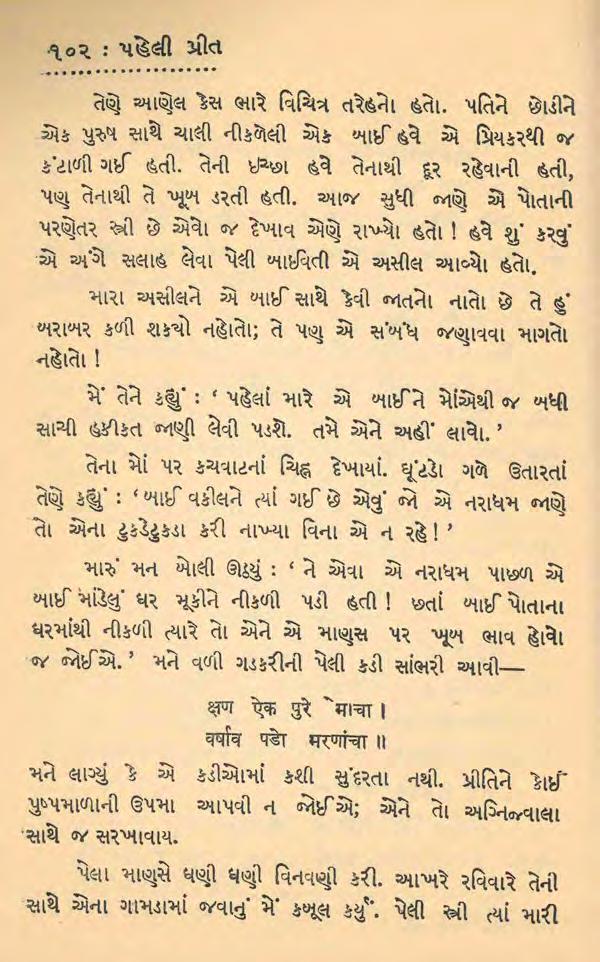 ૧૦૨ : પહેલી પ્રીત
તેણે આણેલ કેસ ભારે વિચિત્ર તરેહનો હતો. પતિને છોડીને
એક પુરુષ સાથે ચાલી નીકળેલી એક બાઈ હવે એ પ્રિયકરથી જ
કંટાળી ગઈ હતી. તેની ઇચ્છા હવે તેનાથી દૂર રહેવાની હતી,
પણ તેનાથી તે ખૂબ ડરતી હતી. આજ સુધી જાણે એ પોતાની
પરણેતર સ્ત્રી છે એવો જ દેખાવ એણે રાખ્યો હતો ! હવે શું કરવું
એ અંગે સલાહ લેવા પેલી બાઈવતી એ અસીલ આવ્યો હતો.
મારા અસીલને એ બાઈ સાથે કેવી જાતનો નાતો છે તે હું
બરાબર કળી શક્યો નહોતો; તે પણ એ સંબંધ જણાવવા માગતો
નહોતો !
મેં તેને કહ્યું : ‘ પહેલાં મારે એ બાઈને મોંએથી જ બધી
સાચી હકીકત જાણી લેવી પડશે. તમે એને અહીં લાવો. ’
તેના મોં પર કચવાટનાં ચિહ્ન દેખાયાં. ઘૂંટડો ગળે ઉતારતાં
તેણે કહ્યું : ‘ બાઈ વકીલને ત્યાં ગઈ છે એવું જો એ નરાધમ જાણે
તો એના ટુકડેટુકડા કરી નાખ્યા વિના એ ન રહે ! ’
મારું મન બોલી ઊઠ્યું : ‘ ને એવા એ નરાધમ પાછળ એ
બાઈ માંડેલું ઘર મૂકીને નીકળી પડી હતી ! છતાં બાઈ પોતાના
ઘરમાંથી નીકળી ત્યારે તો એને એ માણસ પર ખૂબ ભાવ હોવો
જ જોઈએ. ’ મને વળી ગડકરીની પેલી કડી સાંભરી આવી—
क्षण ऐक पुरे ˋमाचा ।
वर्षाव पडो मरणांचा ॥
મને લાગ્યું કે એ કડીઓમાં કશી સુંદરતા નથી. પ્રીતિને કોઈ
પુષ્પમાળાની ઉપમા આપવી ન જોઈએ; એને તો અગ્નિજ્વાલા
સાથે જ સરખાવાય.
પેલા માણસે ઘણી ઘણી વિનવણી કરી. આખરે રવિવારે તેની
સાથે એના ગામડામાં જવાનું મેં કબૂલ કર્યું. પેલી સ્ત્રી ત્યાં મારી